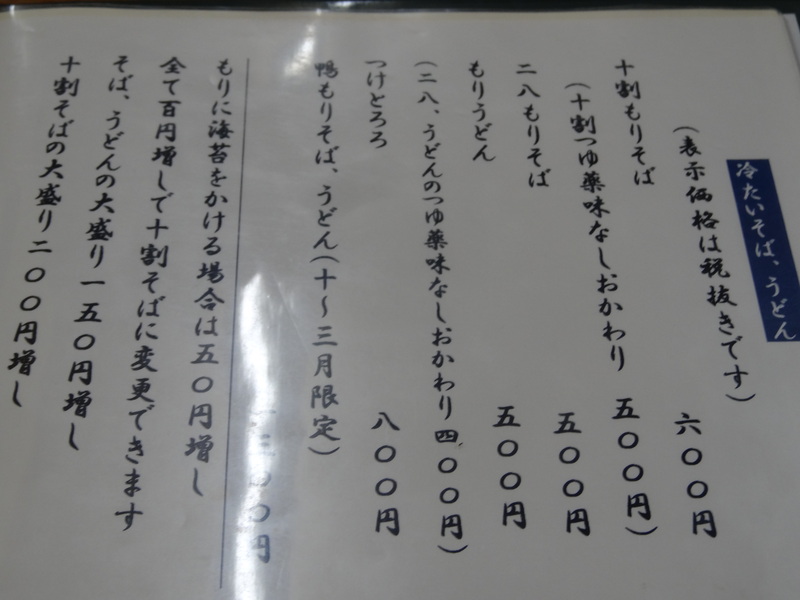 冷たいそば、うどん
(表示価格は税抜きです)
十割もりそば 六〇〇円
(十割つゆ薬味なしおかわり 五〇〇円)
二八もりそば 五〇〇円
もりうどん 五〇〇円
(二八、うどんのつゆ薬味なしおかわり 四〇〇円)
つけとろろ 八〇〇円
鴨もりそば、うどん(十〜三月限定)
一三〇〇円
もりに海苔をかける場合は五〇円増し
全て百円増しで十割そばに変更できます
そば、うどんの大盛り一五〇円増し
十割そばの大盛り二〇〇円増し